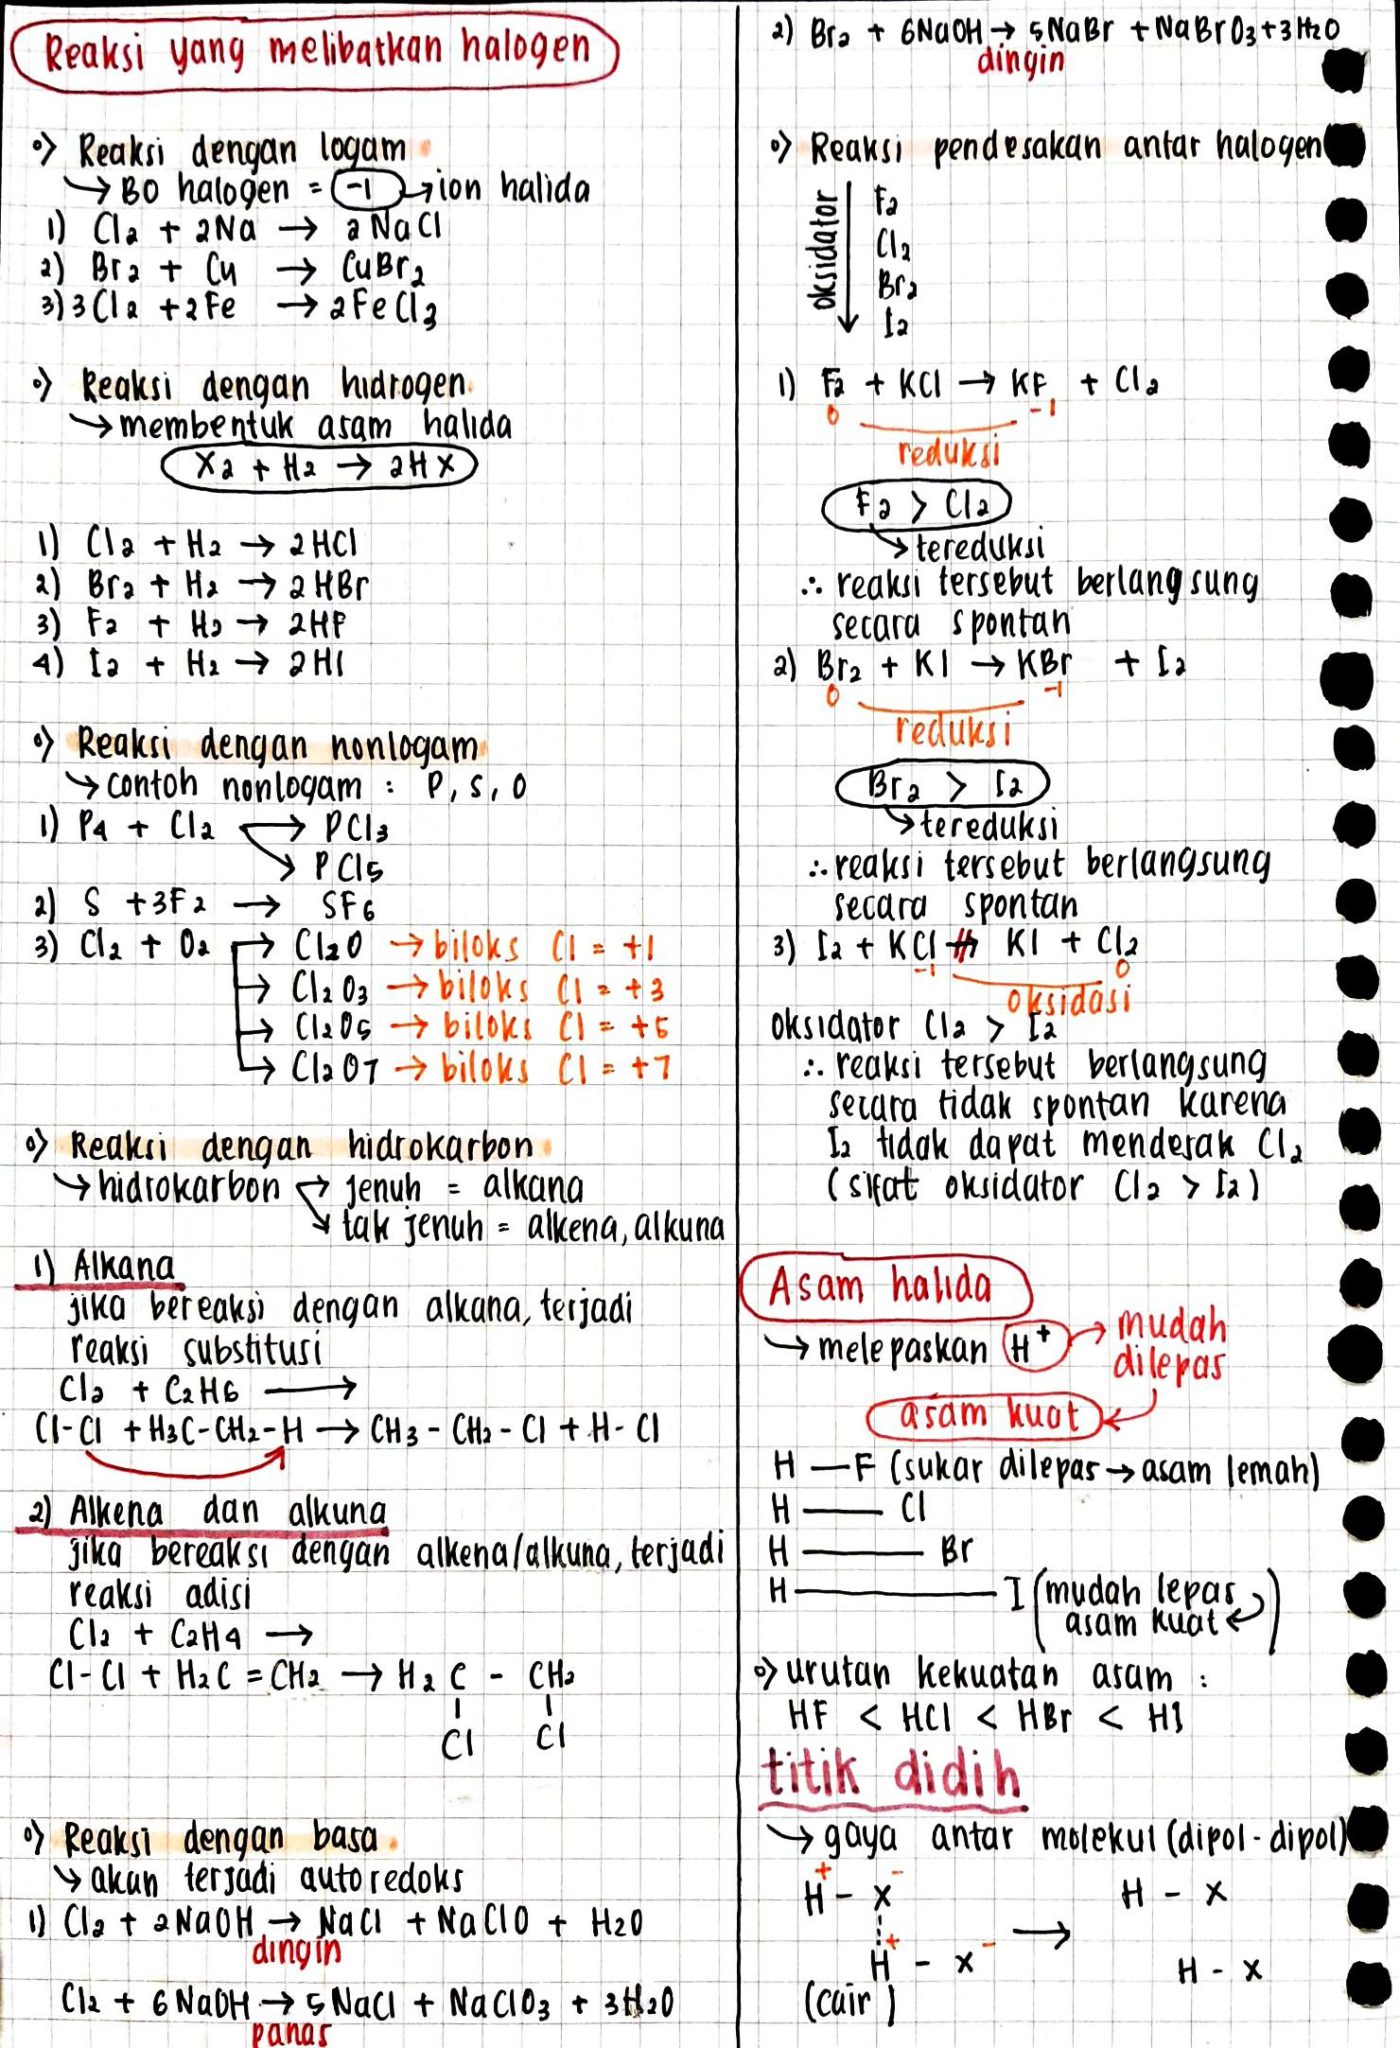 Reaksi yang melibatkan halogen
Reaksi dengan logam
→ BO halogen = -1 → ion halida
1) Cl₂ + 2Na → 2NaCl
2) Br₂ + Cu → CuBr₂
3) 3Cl₂ + 2Fe → 2FeCl₃
Reaksi dengan hidrogen
→ membentuk asam halida
X₂ + H₂ → 2HX
1) Cl₂ + H₂ → 2HCl
2) Br₂ + H₂ → 2HBr
3) F₂ + H₂ → 2HF
4) I₂ + H₂ → 2HI
Reaksi dengan nonlogam
→ contoh nonlogam : P, S, O
1) P₄ + Cl₂ → PCl₃
→ PCl₅
2) S + 3F₂ → SF₆
3) Cl₂ + O₂ → Cl₂O → biloks Cl = +1
→ Cl₂O₃ → biloks Cl = +3
→ Cl₂O₅ → biloks Cl = +5
→ Cl₂O₇ → biloks Cl = +7
Reaksi dengan hidrokarbon
→ hidrokarbon → jenuh = alkana
→ tak jenuh = alkena, alkuna
1) Alkana
jika bereaksi dengan alkana, terjadi
reaksi substitusi
Cl₂ + C₂H₆ →
Cl-Cl + H₃C-CH₂-H → CH₃ - CH₂ - Cl + H - Cl
2) Alkena dan alkuna
jika bereaksi dengan alkena/alkuna, terjadi
reaksi adisi
Cl₂ + C₂H₄ →
Cl-Cl + H₂C = CH₂ → H₂C - CH₂
Cl Cl
Reaksi dengan basa
→ akan terjadi autoredoks
1) Cl₂ + 2NaOH → NaCl + NaClO + H₂O
dingin
Cl₂ + 6NaOH → 5NaCl + NaClO₃ + 3H₂O
panas
2) Br₂ + 6NaOH → 5NaBr + NaBrO₃ + 3H₂O
dingin
Reaksi pendesakan antar halogen
oksidator
F₂
Cl₂
Br₂
I₂
1) F₂ + KCl → KF + Cl₂
0 -1
reduksi
F₂ > Cl₂
→ tereduksi
∴ reaksi tersebut berlangsung
secara spontan
2) Br₂ + KI → KBr + I₂
0 -1
reduksi
Br₂ > I₂
→ tereduksi
∴ reaksi tersebut berlangsung
secara spontan
3) I₂ + KCl ↛ KI + Cl₂
-1 0
oksidasi
oksidator Cl₂ > I₂
∴ reaksi tersebut berlangsung
secara tidak spontan karena
I₂ tidak dapat mendesak Cl₂
(sifat oksidator Cl₂ > I₂)
Asam halida
→ melepaskan H⁺ → mudah
dilepas
asam kuat
H — F (sukar dilepas → asam lemah)
H — Cl
H — Br
H — I (mudah lepas
asam kuat)
urutan kekuatan asam :
HF < HCl < HBr < HI
titik didih
→ gaya antar molekul (dipol-dipol)
+ -
H - X H - X
→
+ -
H - X H - X
(cair)